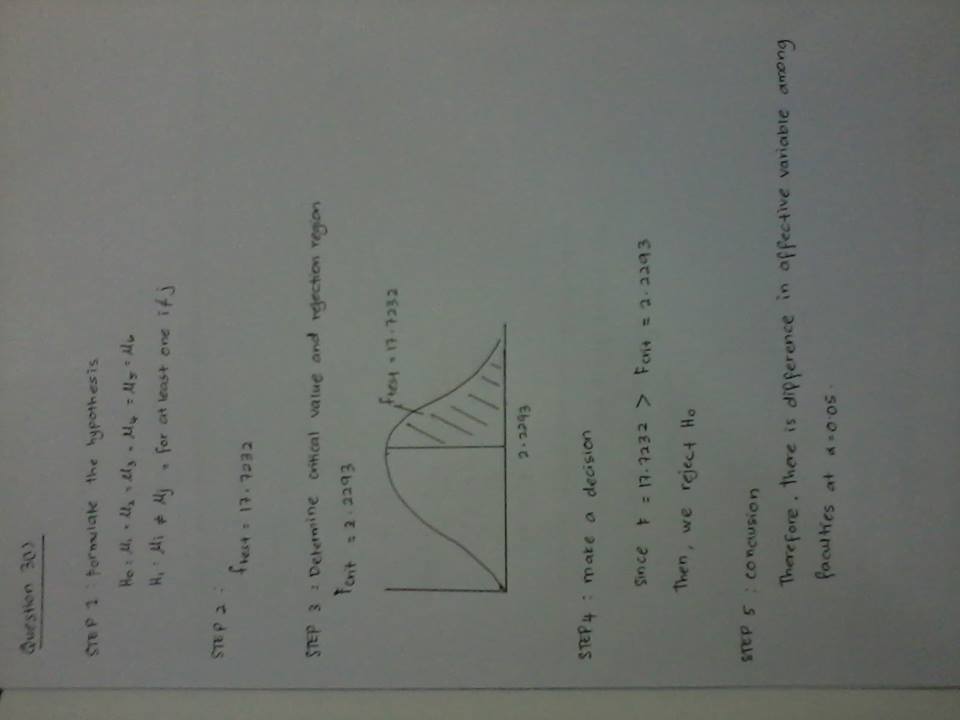 Question 3(i)
STEP 1 : formulate the hypothesis
H₀ : μ₁ = μ₂ = μ₃ = μ₄ = μ₅ = μ₆
H₁ : μi ≠ μj = for at least one i≠j
STEP 2 :
ftest = 17.7232
STEP 3 : Determine critical value and rejection region
Fcrit = 2.2293
ftest = 17.7232
2.2293
STEP 4 : make a decision
Since F = 17.7232 > Fcrit = 2.2293
Then, we reject H₀
STEP 5 : conclusion
Therefore, there is difference in affective variable among
faculties at α = 0.05.